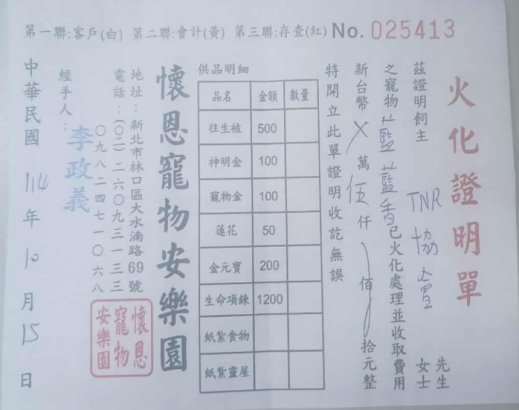 第一聯:客戶(白) 第二聯:會計(黃) 第三聯:存查(紅) No. 025413
火化證明單
茲證明飼主 TNR 協會 先生 女士
之寵物 藍藍香 已火化處理並收取費用
新台幣 X 萬 伍 仟 佰 拾元整
特開立此單證明收訖無誤
供品明細
品名 金額 數量
往生被 500
神明金 100
寵物金 100
蓮花 50
金元寶 200
生命項鍊 1200
紙紮食物
紙紮靈屋
懷恩寵物安樂園
地址:新北市林口區大水湳路69號
電話:(〇二)二六〇九三一三三
〇九八二四七一〇六八
經手人:李政義
懷恩
寵物
安樂園
中華民國 114 年 10 月 15 日